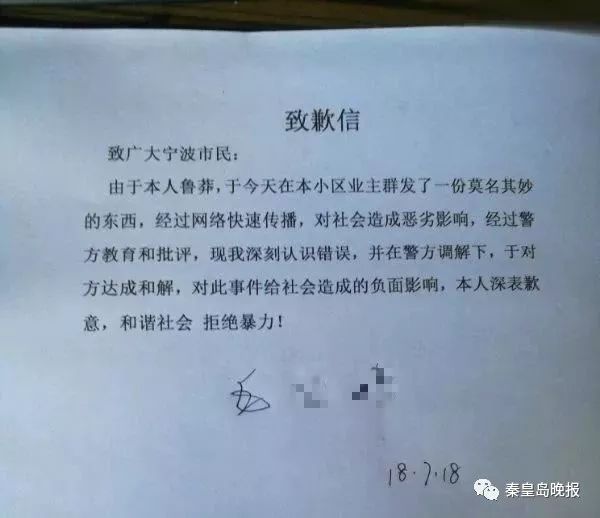 致歉信
致广大宁波市民:
由于本人鲁莽,于今天在本小区业主群发了一份莫名其妙
的东西,经过网络快速传播,对社会造成恶劣影响,经过警
方教育和批评,现我深刻认识错误,并在警方调解下,于对
方达成和解,对此事件给社会造成的负面影响,本人深表歉
意,和谐社会 拒绝暴力!
18.7.18
秦皇岛晚报